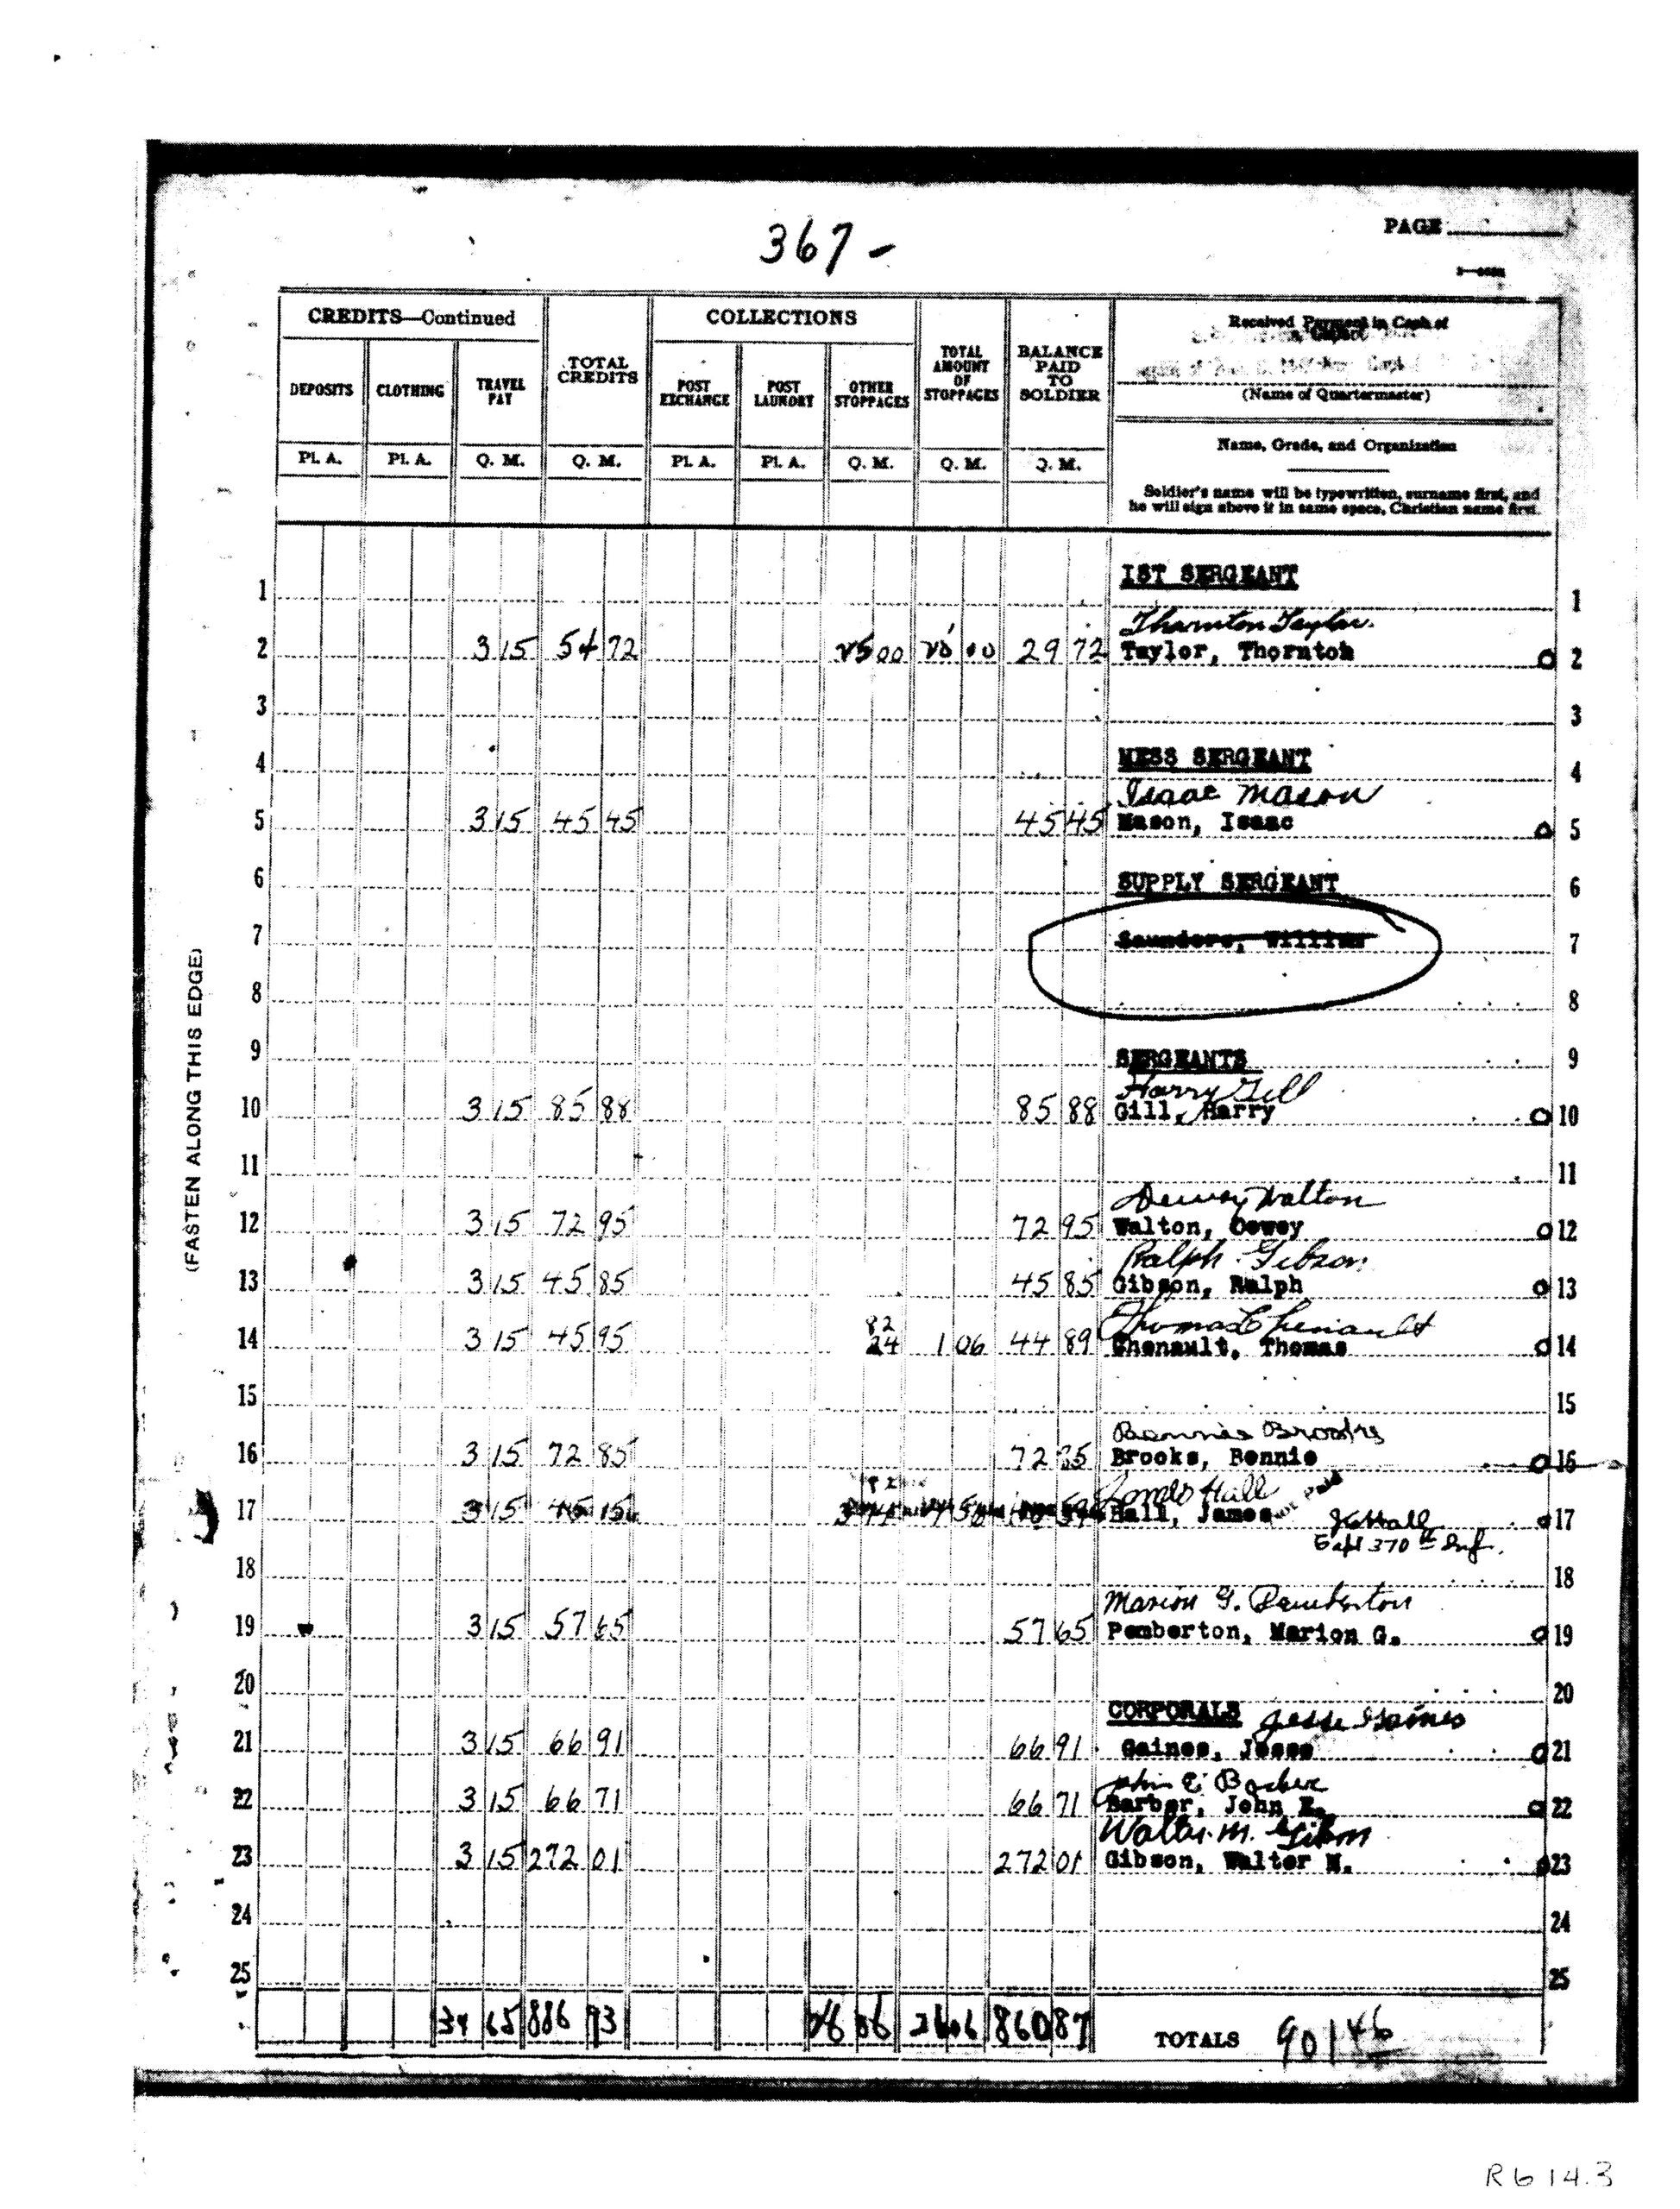 367-
PAGE
CREDITS—Continued
COLLECTIONS
Received Payment in Cash of
DEPOSITS CLOTHING TRAVEL PAY TOTAL CREDITS POST EXCHANGE POST LAUNDRY OTHER STOPPAGES TOTAL AMOUNT OF STOPPAGES BALANCE PAID TO SOLDIER
(Name of Quartermaster)
Pl. A. Pl. A. Q. M. Q. M. Pl. A. Pl. A. Q. M. Q. M. Q. M.
Name, Grade, and Organization
Soldier's name will be typewritten, surname first, and
he will sign above it in same space, Christian name first.
(FASTEN ALONG THIS EDGE)
1 1ST SERGEANT 1
Thornton Taylor.
2 3 15 54 72 25 00 25 00 29 72 Taylor, Thornton 2
3 3
4 MESS SERGEANT 4
Isaac Mason
5 3 15 45 45 45 45 Mason, Isaac 5
6 SUPPLY SERGEANT 6
7 Saunders, William 7
8 8
9 SERGEANTS 9
Harry Gill
10 3 15 85 88 85 88 Gill, Harry 10
11 11
Dewey Walton
12 3 15 72 95 72 95 Walton, Dewey 12
Ralph Gibson
13 3 15 45 85 45 85 Gibson, Ralph 13
82 Thomas Chenault
14 3 15 45 95 24 1 06 44 89 Chenault, Thomas 14
15 15
Bennie Brooks
16 3 15 72 85 72 85 Brooks, Bennie 16
James Hall not paid
17 3 15 45 15 Hall, James JCHall 17
Capt 370th Inf.
18 18
Marion G. Pemberton
19 3 15 57 65 57 65 Pemberton, Marion G. 19
20 20
CORPORALS Jesse Gaines
21 3 15 66 91 66 91 Gaines, Jesse 21
John E. Barber
22 3 15 66 71 66 71 Barber, John E. 22
Walter M. Gibson
23 3 15 272 01 272 01 Gibson, Walter M. 23
24 24
25 25
34 65 886 93 26 06 26 06 860 87 TOTALS 901 46
RG 14.3